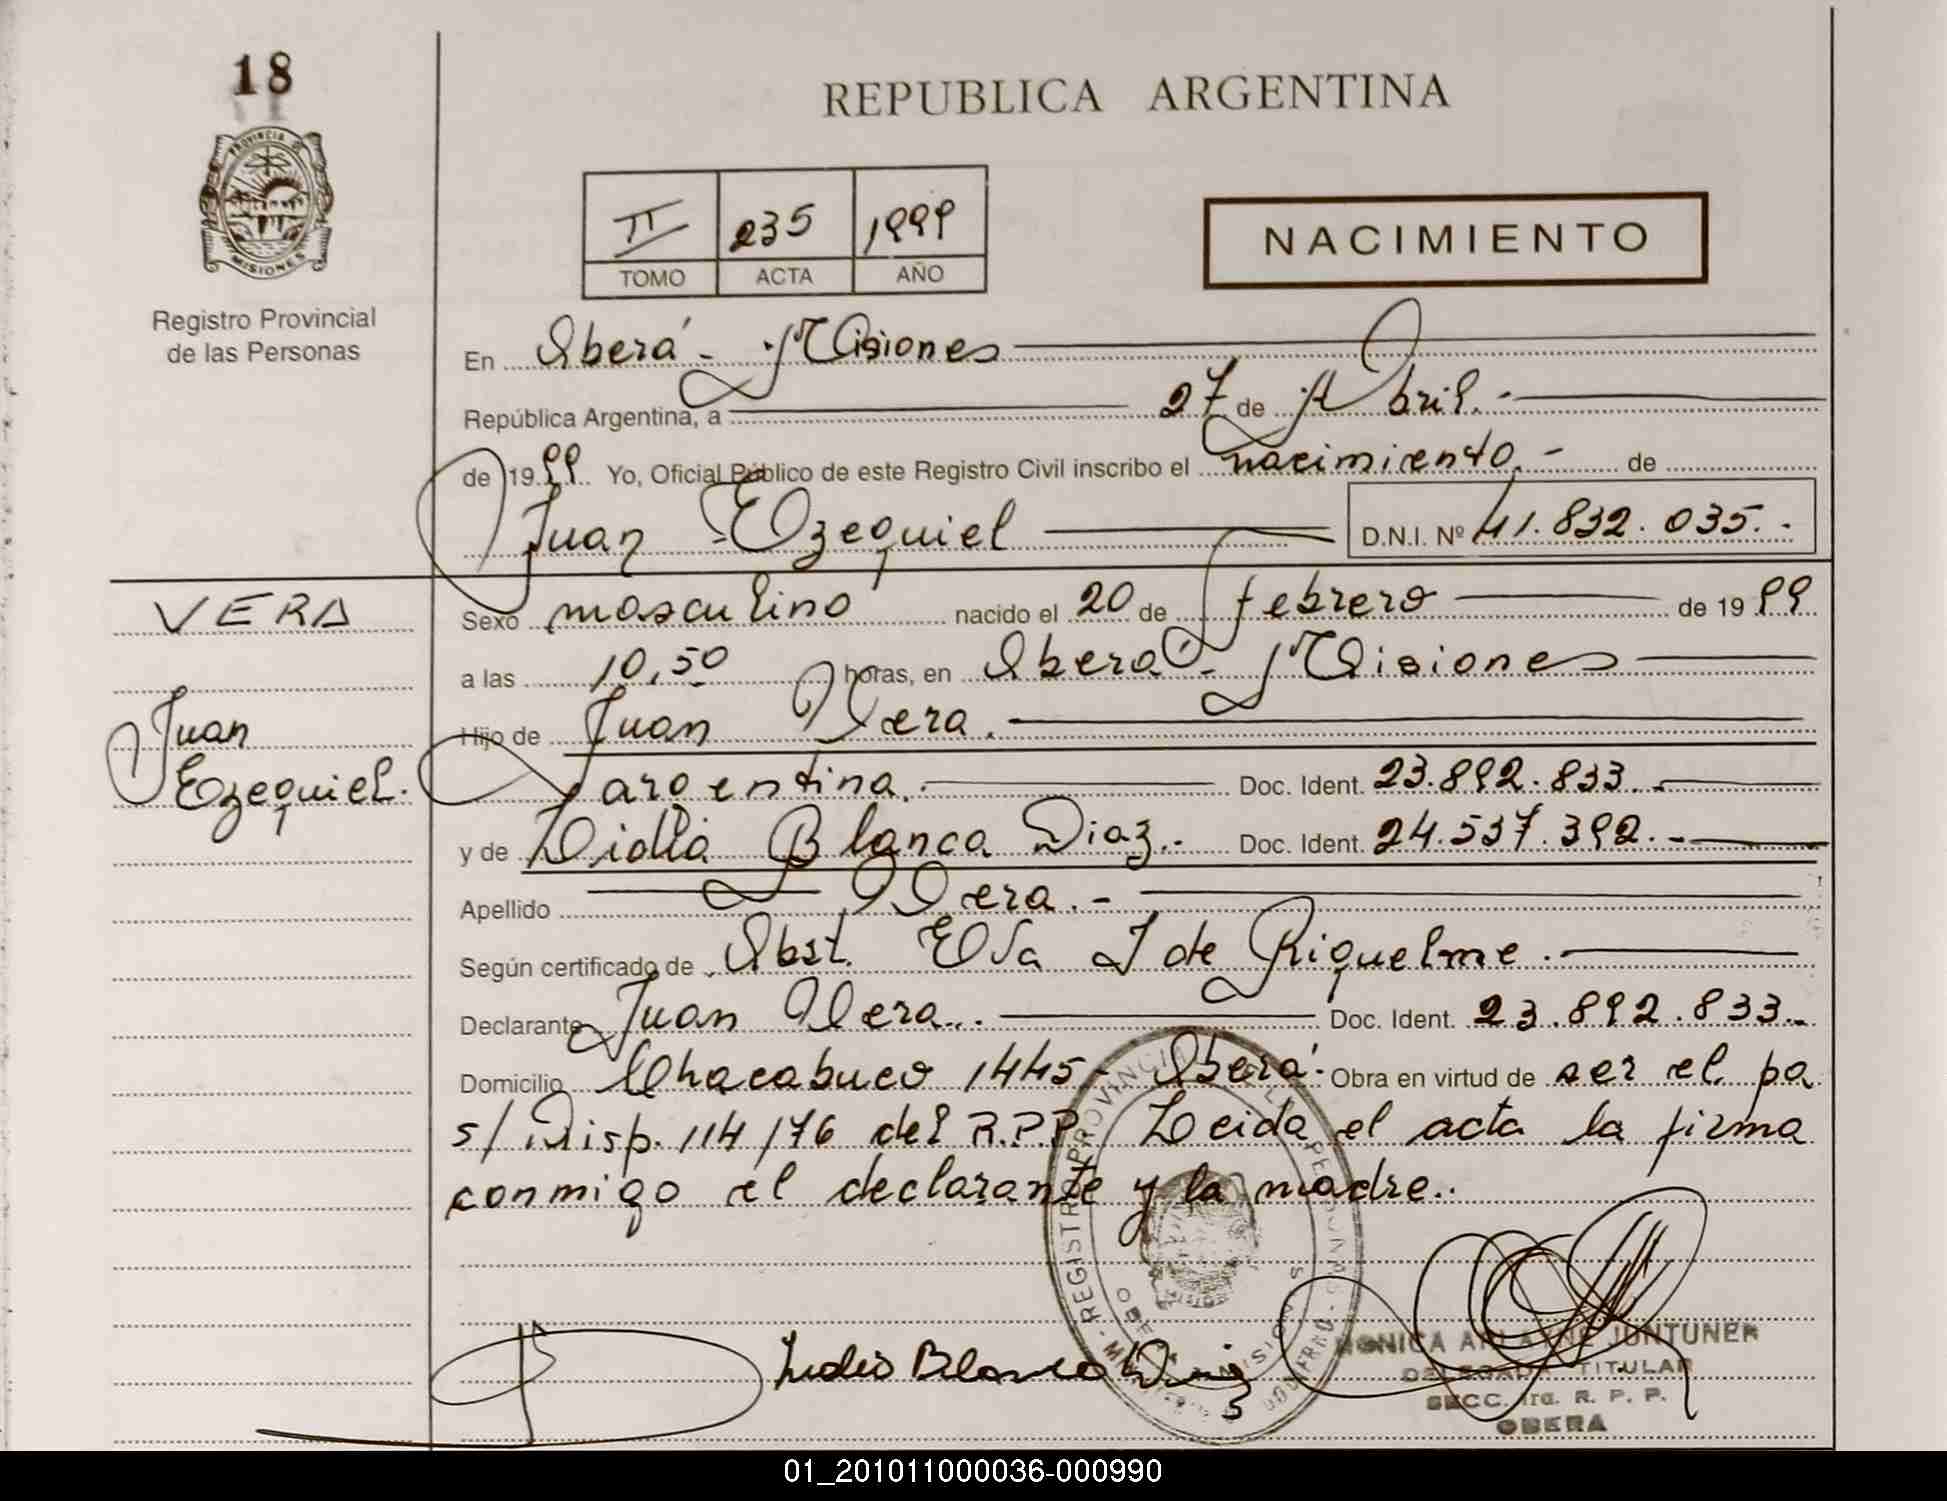 18
REPUBLICA ARGENTINA
PROVINCIA DE
MISIONES
II 235 1999
TOMO ACTA AÑO
NACIMIENTO
Registro Provincial
de las Personas
En Oberá - Misiones
República Argentina, a 27 de Abril.-
de 1999 Yo, Oficial Público de este Registro Civil inscribo el nacimiento.- de
Juan Ezequiel D.N.I. Nº 41.832.035.-
VERA
Juan
Ezequiel.
Sexo masculino nacido el 20 de febrero de 1999
a las 10,50 horas, en Oberá - Misiones
Hijo de Juan Vera.
argentina. Doc. Ident. 23.892.833.-
y de Lidia Blanca Diaz.- Doc. Ident. 24.537.392.-
Apellido Vera.-
Según certificado de Obst. Elsa I de Riquelme.
Declarante Juan Vera.. Doc. Ident. 23.892.833.-
Domicilio Chacabuco 1445 - Oberá. Obra en virtud de ser el pa
s/ Disp. 114/76 del R.P.P. Leida el acta la firma
conmigo el declarante y la madre..
Blanca Diaz
MONICA JUNTUNEN
DELEGADA TITULAR
SECC. 1ra. R. P. P.
OBERA
01_201011000036-000990